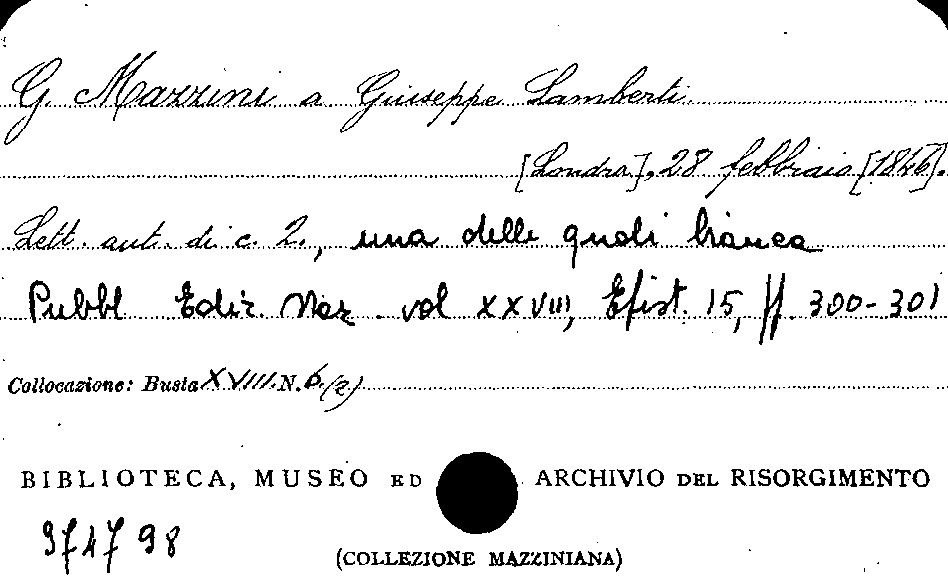 G. Mazzini a Giuseppe Lamberti.
[Londra], 28 febbraio [1846].
Lett. aut. di c. 2., una delle quali bianca
Pubbl Ediz. Naz. vol XXVIII, Epist. 15, pp. 300-301
Collocazione: Busta XVIII N. 6 (2)
BIBLIOTECA, MUSEO ED ARCHIVIO DEL RISORGIMENTO
974798
(COLLEZIONE MAZZINIANA)